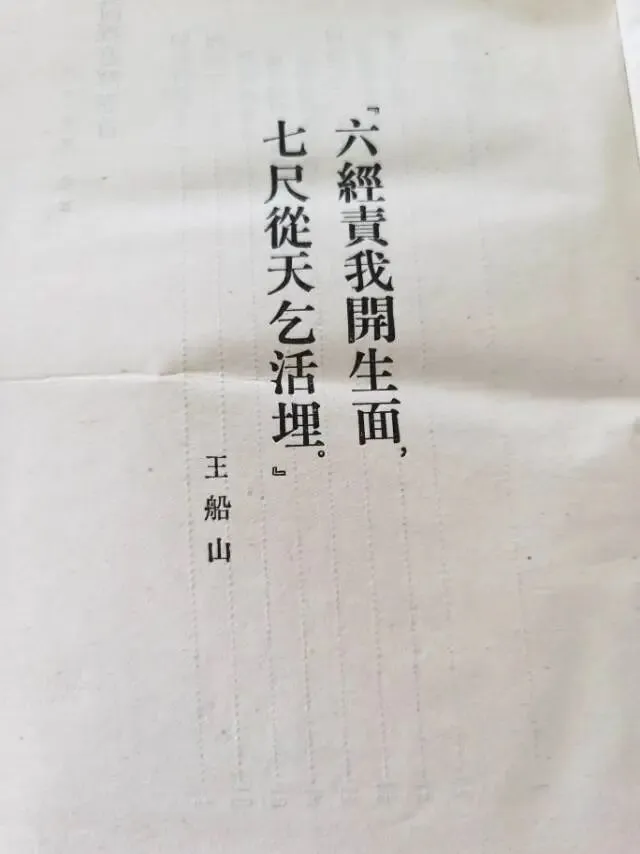 『六經責我開生面，
七尺從天乞活埋。』
王船山